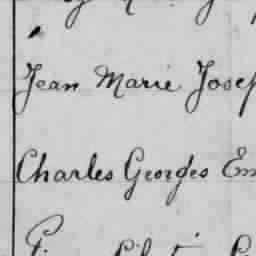 Jean Marie Josep
Charles Georges Em